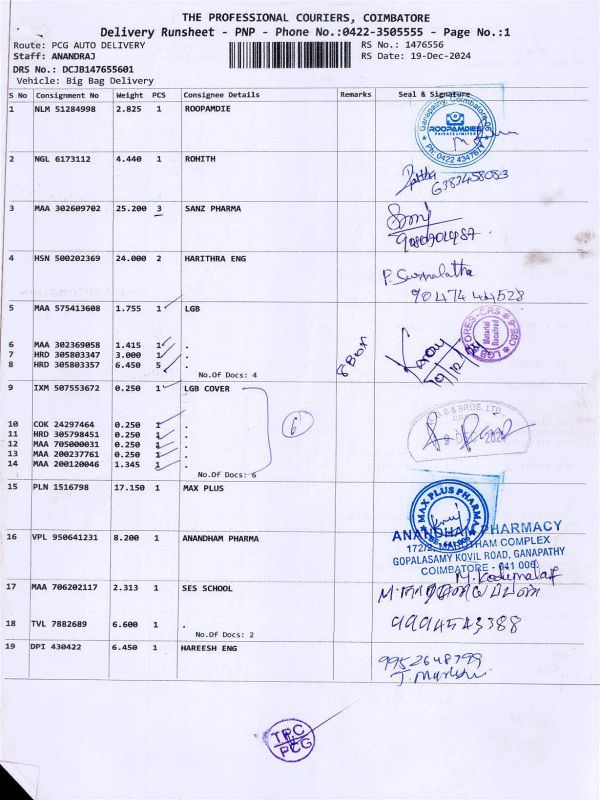 THE PROFESSIONAL COURIERS, COIMBATORE
Delivery Runsheet - PNP - Phone No.:0422-3505555 - Page No.:1
Route: PCG AUTO DELIVERY RS No.: 1476556
Staff: ANANDRAJ RS Date: 19-Dec-2024
DRS No.: DCJB147655601
Vehicle: Big Bag Delivery
S No Consignment No Weight PCS Consignee Details Remarks Seal & Signature
1 NLM 51284998 2.825 1 ROOPAMDIE
Ganapathy, Coimbatore
ROOPAMDIES
PRIVATE LIMITED
2 NGL 6173112 4.440 1 ROHITH
6383458083
3 MAA 302609702 25.200 3 SANZ PHARMA
4 HSN 500202369 24.000 2 HARITHRA ENG
90474 44528
5 MAA 575413608 1.755 1 LGB
Material Received
6 MAA 302369058 1.415 1 .
7 HRD 305803347 3.000 1 .
8 HRD 305803357 6.450 5 .
8 Box
19/12/24
No.Of Docs: 4
9 IXM 507553672 0.250 1 LGB COVER
6
10 COK 24297464 0.250 1 .
11 HRD 305798451 0.250 1 .
12 MAA 705000031 0.250 1 .
13 MAA 200237761 0.250 1 .
14 MAA 200120046 1.345 1 .
No.Of Docs: 6
15 PLN 1516798 17.150 1 MAX PLUS
MAX PLUS PHARMA
16 VPL 950641231 8.200 1 ANANDHAM PHARMA
ANANDHAM PHARMACY
COMPLEX
GOPALASAMY KOVIL ROAD, GANAPATHY
COIMBATORE - 641 006.
17 MAA 706202117 2.313 1 SES SCHOOL
18 TVL 7882689 6.600 1 .
9994543388
No.Of Docs: 2
19 DPI 430422 6.450 1 HAREESH ENG
9952648799
TPC
PCG